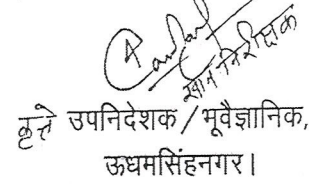 खान निरीक्षक
कृते उपनिदेशक / भूवैज्ञानिक,
ऊधमसिंहनगर।